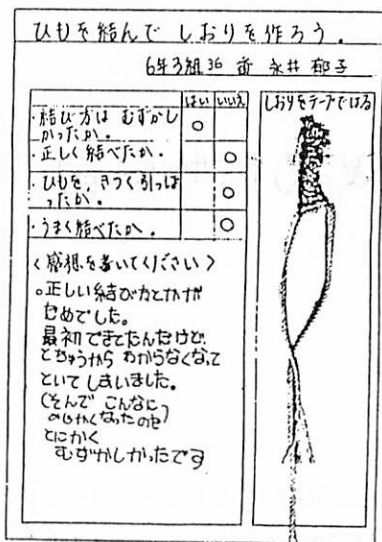 ひもを結んで しおりを作ろう。
6年3組36番 永井 郁子
はい いいえ
・結び方は むずかし
かったか。 ○
・正しく結べたか。 ○
・ひもを、きつく引っぱ
ったか。 ○
・うまく結べたか。 ○
しおりをテープではる
〈感想を書いてください〉
○正しい結び方とかが
だめでした。
最初できてたんだけど、
とちゅうから わからなくなって
といて しまいました。
(そんで こんなに
みじかくなったのだ)
とにかく
むずかしかったです